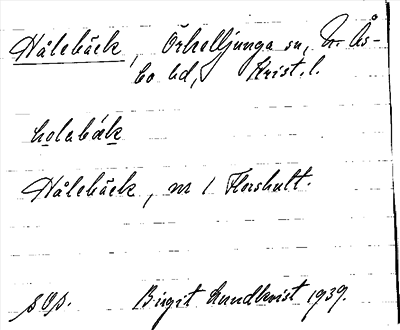 Hålebäck, Örkelljunga sn, N. Ås-
bo hd, Krist. l.
holabäk
Hålebäck, m 1 Florshult.
sop.
Birgit Lundkvist 1939.